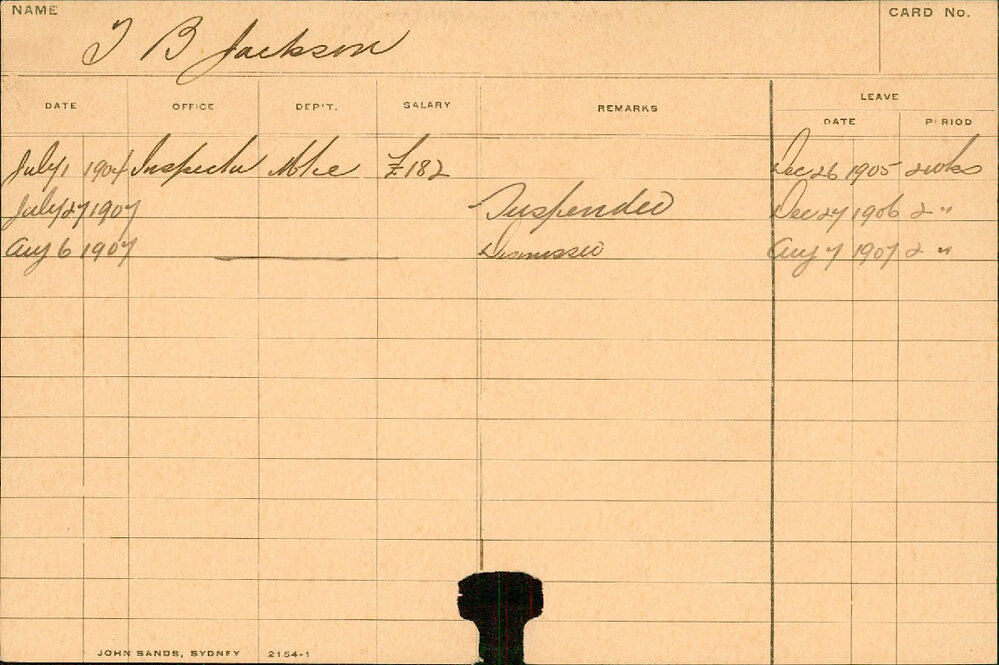 NAME CARD No.
T B Jackson
LEAVE
DATE OFFICE DEP'T. SALARY REMARKS DATE PERIOD
July 1 1904 Inspector Mke £182 Dec 26 1905 2 wks
July 27 1907 Suspended Dec 27 1906 2 "
Aug 6 1907 Dismissed Aug 7 1907 2 "
JOHN SANDS, SYDNEY 2154-1